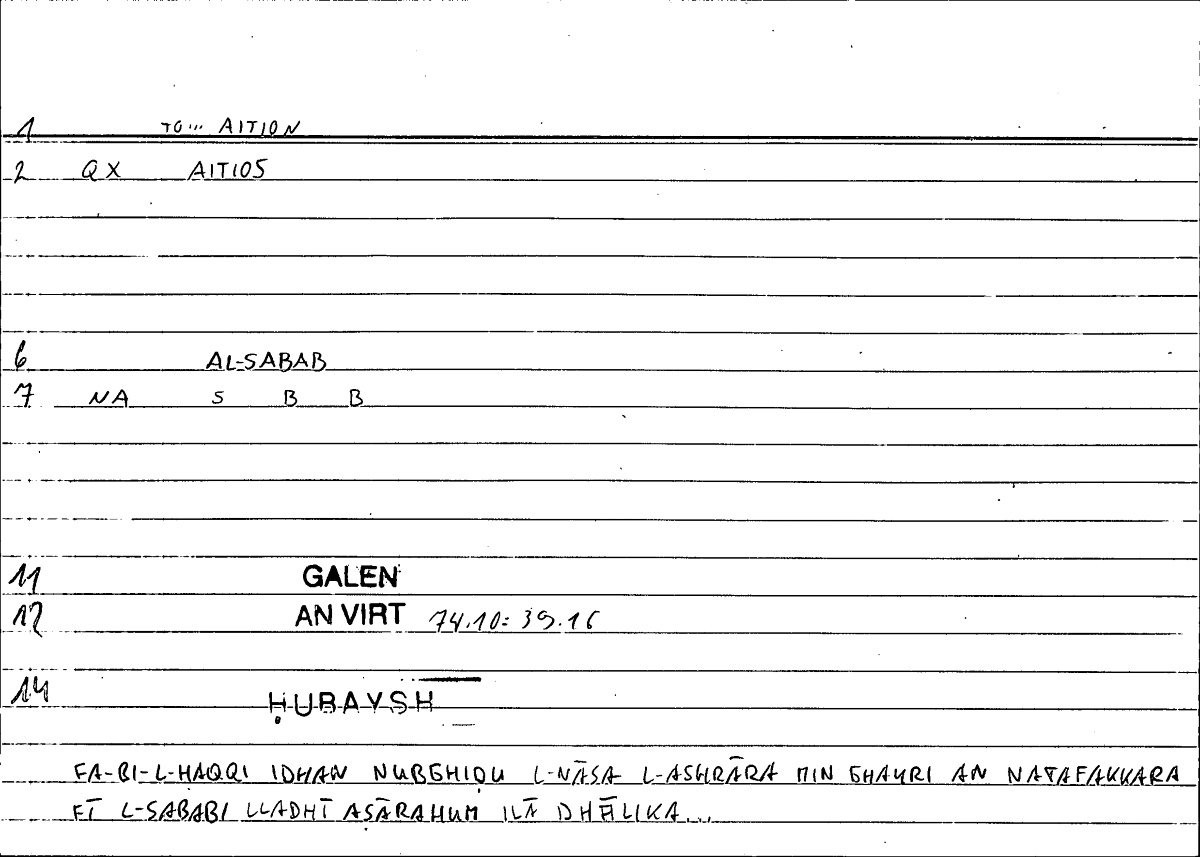 1 TO... AITION
2 QX AITIOS
6 AL-SABAB
7 NA S B B
11 GALEN
12 AN VIRT 74.10: 39.16
14 ḤUBAYSH
FA-BI-L-HAQQI IDHAN NUBGHIḌU L-NĀSA L-ASHRĀRA MIN GHAYRI AN NATAFAKKARA
FĪ L-SABABI LLADHĪ AṢĀRAHUM ILĀ DHĀLIKA...